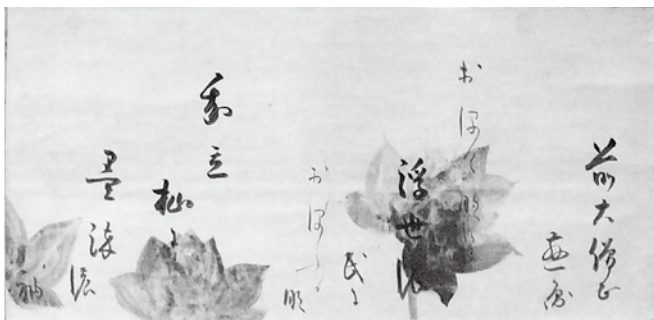 前大僧正
慈圓
おほけなく
浮世の
民に
おほふ
我立
杣に
墨染濃
袖